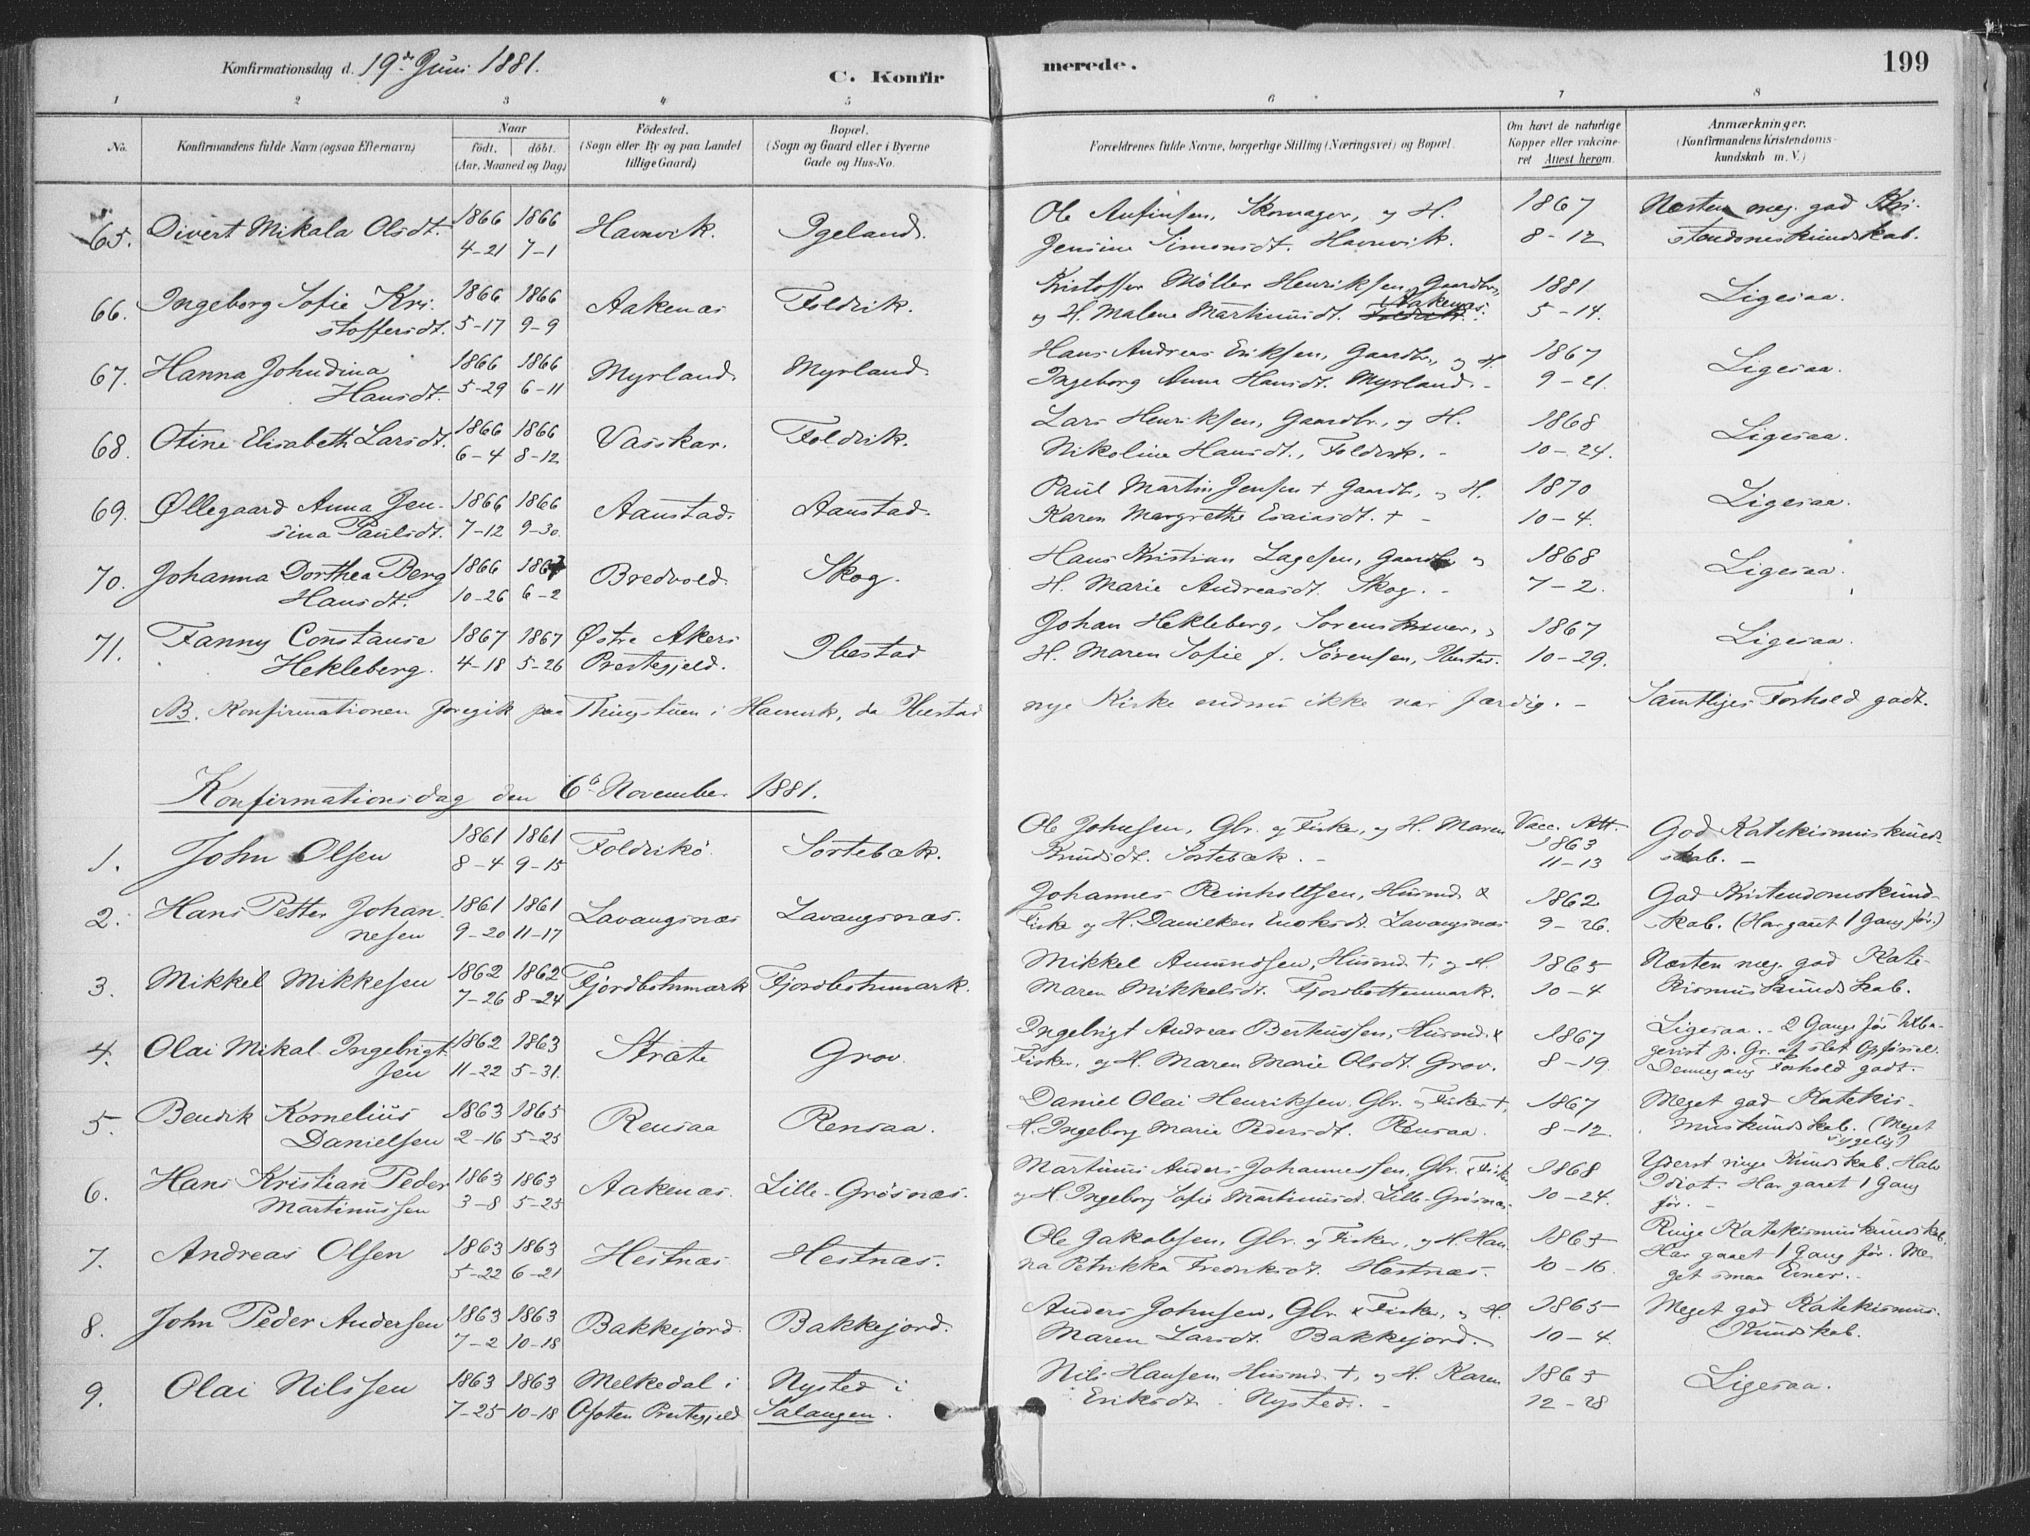 Konfirmationsdag d. 19de Juni 1881.
C. Konfirmerede.
199
1 2 3 4 5 6 7 8
No. Konfirmandens fulde Navn (ogsaa Efternavn) Naar födt. döbt. (Aar, Maaned og Dag) Födested. (Sogn eller By og paa Landet tillige Gaard) Bopæl. (Sogn og Gaard eller i Byerne Gade og Hus-No. Forældrenes fulde Navne, borgerlige Stilling (Næringsvei) og Bopæl. Om havt de naturlige Kopper eller vakcineret Attest herom. Anmærkninger. (Konfirmandens Kristendomskundskab m. V.)
65. Divert Mikala Olsdt. 1866 4-21 1866 7-1 Havnvik. Igeland. Ole Anfinsen, Skomager, og H. 1867 Næsten meg. god Kri-
Jensine Simonsdt. Havnvik. 8-12 stendomskundskab.
66. Ingeborg Sofie Kri- 1866 1866 Aakenæs Foldvik. Kristoffer Möller Henriksen, Gaardbr., 1881 Ligesaa.
stoffersdt. 5-17 9-9 og H. Malene Martinusdt. Foldvik. Aakenæs. 5-14.
67. Hanna Johndina 1866 1866 Myrland. Myrland. Hans Andreas Eriksen, Gaardbr., og H. 1867 Ligesaa.
Hansdt. 5-29 6-11 Ingeborg Anna Hansdt. Myrland. - 9-21.
68. Otine Elisabeth Larsdt. 1866 1866 Vasskar. Foldvik. Lars Henriksen, Gaardbr., og H. 1868 Ligesaa.
6-4 8-12 Nikoline Hansdt., Foldvik. - 10-24.
69. Øllegaard Anna Jen- 1866 1866 Aanstad. Aanstad. Paul Martin Jensen + Gaardb., og H. 1870 Ligesaa.
sina Paulsdt. 7-12 9-30. Karen Margrethe Esaiasdt. + - 10-4.
70. Johanna Dorthea Berg 1866 1867 Bredvold. Skog. Hans Kristian Lagesen, Gaardbr. og 1868 Ligesaa.
Hansdt. 10-26 6-2 H. Marie Andreasdt. Skog. - 7-2.
71. Fanny Constanse 1867 1867 Østre Akers Ibestad Johan Hekleberg, Sorenskriver, og 1867 Ligesaa.
Hekleberg. 4-18 5-26 Prestegjeld. H. Maren Sofie f. Sørensen, Ibestad. 10-29.
NB. Konfirmationen foregik paa Thingstuen i Havnvik, da Ibestad nye Kirke endnu ikke var færdig. - Samtliges Forhold godt.
Konfirmationsdag den 6te November 1881.
1. John Olsen 1861 1861 Foldvikö. Sortebæk. Ole Johnsen, Gbr. og Fisker, og H. Maren Vacc. Att. 1863 God Katekismuskund-
8-4 9-15 Knudsdt. Sortebæk. - 11-13 skab. -
2. Hans Petter Johan- 1861 1861 Lavangsnæs Lavangsnæs. Johannes Reinholtsen, Husmd. & 1862 God Kristendomskund-
nesen 9-20 11-17 Fisker og H. Danielken Enoksdt. Lavangsnæs 9-26. skab. (Har gaaet 1 Gang før.)
3. Mikkel Mikkelsen 1862 1862 Fjordbotnmark Fjordbotnmark. Mikkel Amundsen, Husmd. +, og H. 1865 Næsten meg. god Kate-
7-26 8-24 Maren Mikkelsdt. Fjordbottenmark. 10-4 kismuskundskab.
4. Olai Mikal Ingebrigt- 1862 1863 Stræte Grov. Ingebrigt Andreas Berteussen, Husmd. & 1867 Ligesaa. - 2 Gange før tilba-
sen 11-22 5-31. Fisker, og H. Maren Marie Olsdt. Grov. 8-19. gevist p. Gr. af slet Opførsel.
Dennegang Forhold godt.
5. Bendik Kornelius 1863 1863 Rensaa Rensaa. Daniel Olai Henriksen, Gbr. og Fisker +, 1867 Meget god Katekis-
Danielsen 2-16 5-25 H. Ingeborg Marie Pedersdt. Rensaa. 8-12. muskundskab. (Meget sygelig)
6. Hans Kristian Peder 1863 1863 Aakenæs. Lille-Grösnæs. Martinus Anders Johannessen, Gbr. & Fisker 1868 Yderst ringe Kundskab. Halv
Martinussen 3-8 5-25 og H. Ingeborg Sofie Martinusdt. Lille-Grösnæs. 10-24. Idiot. Har gaaet 1 Gang
før. -
7. Andreas Olsen 1863 1863 Hestnæs. Hestnæs. Ole Jakobsen, Gbr. og Fisker, og H. Han- 1865 Ringe Katekismuskundskab.
5-22 6-21 na Petrikka Fredriksdt. Hestnæs. 10-16. Har gaaet 1 Gang før. Me-
get smaa Evner. -
8. John Peder Andersen 1863 1863 Bakkejord. Bakkejord. Anders Johnsen, Gbr. & Fisker, og H. 1865 Meget god Katekismus-
7-2 10-18 Maren Larsdt. Bakkejord. 10-4 kundskab.
9. Olai Nilssen 1863 1863 Melkedal i Nysted i Nils Hansen Husmd. +, og H. Karen 1865 Ligesaa.
7-25 10-18 Ofoten Prestegjeld Salangen. Eriksdt. Nysted. - 12-28